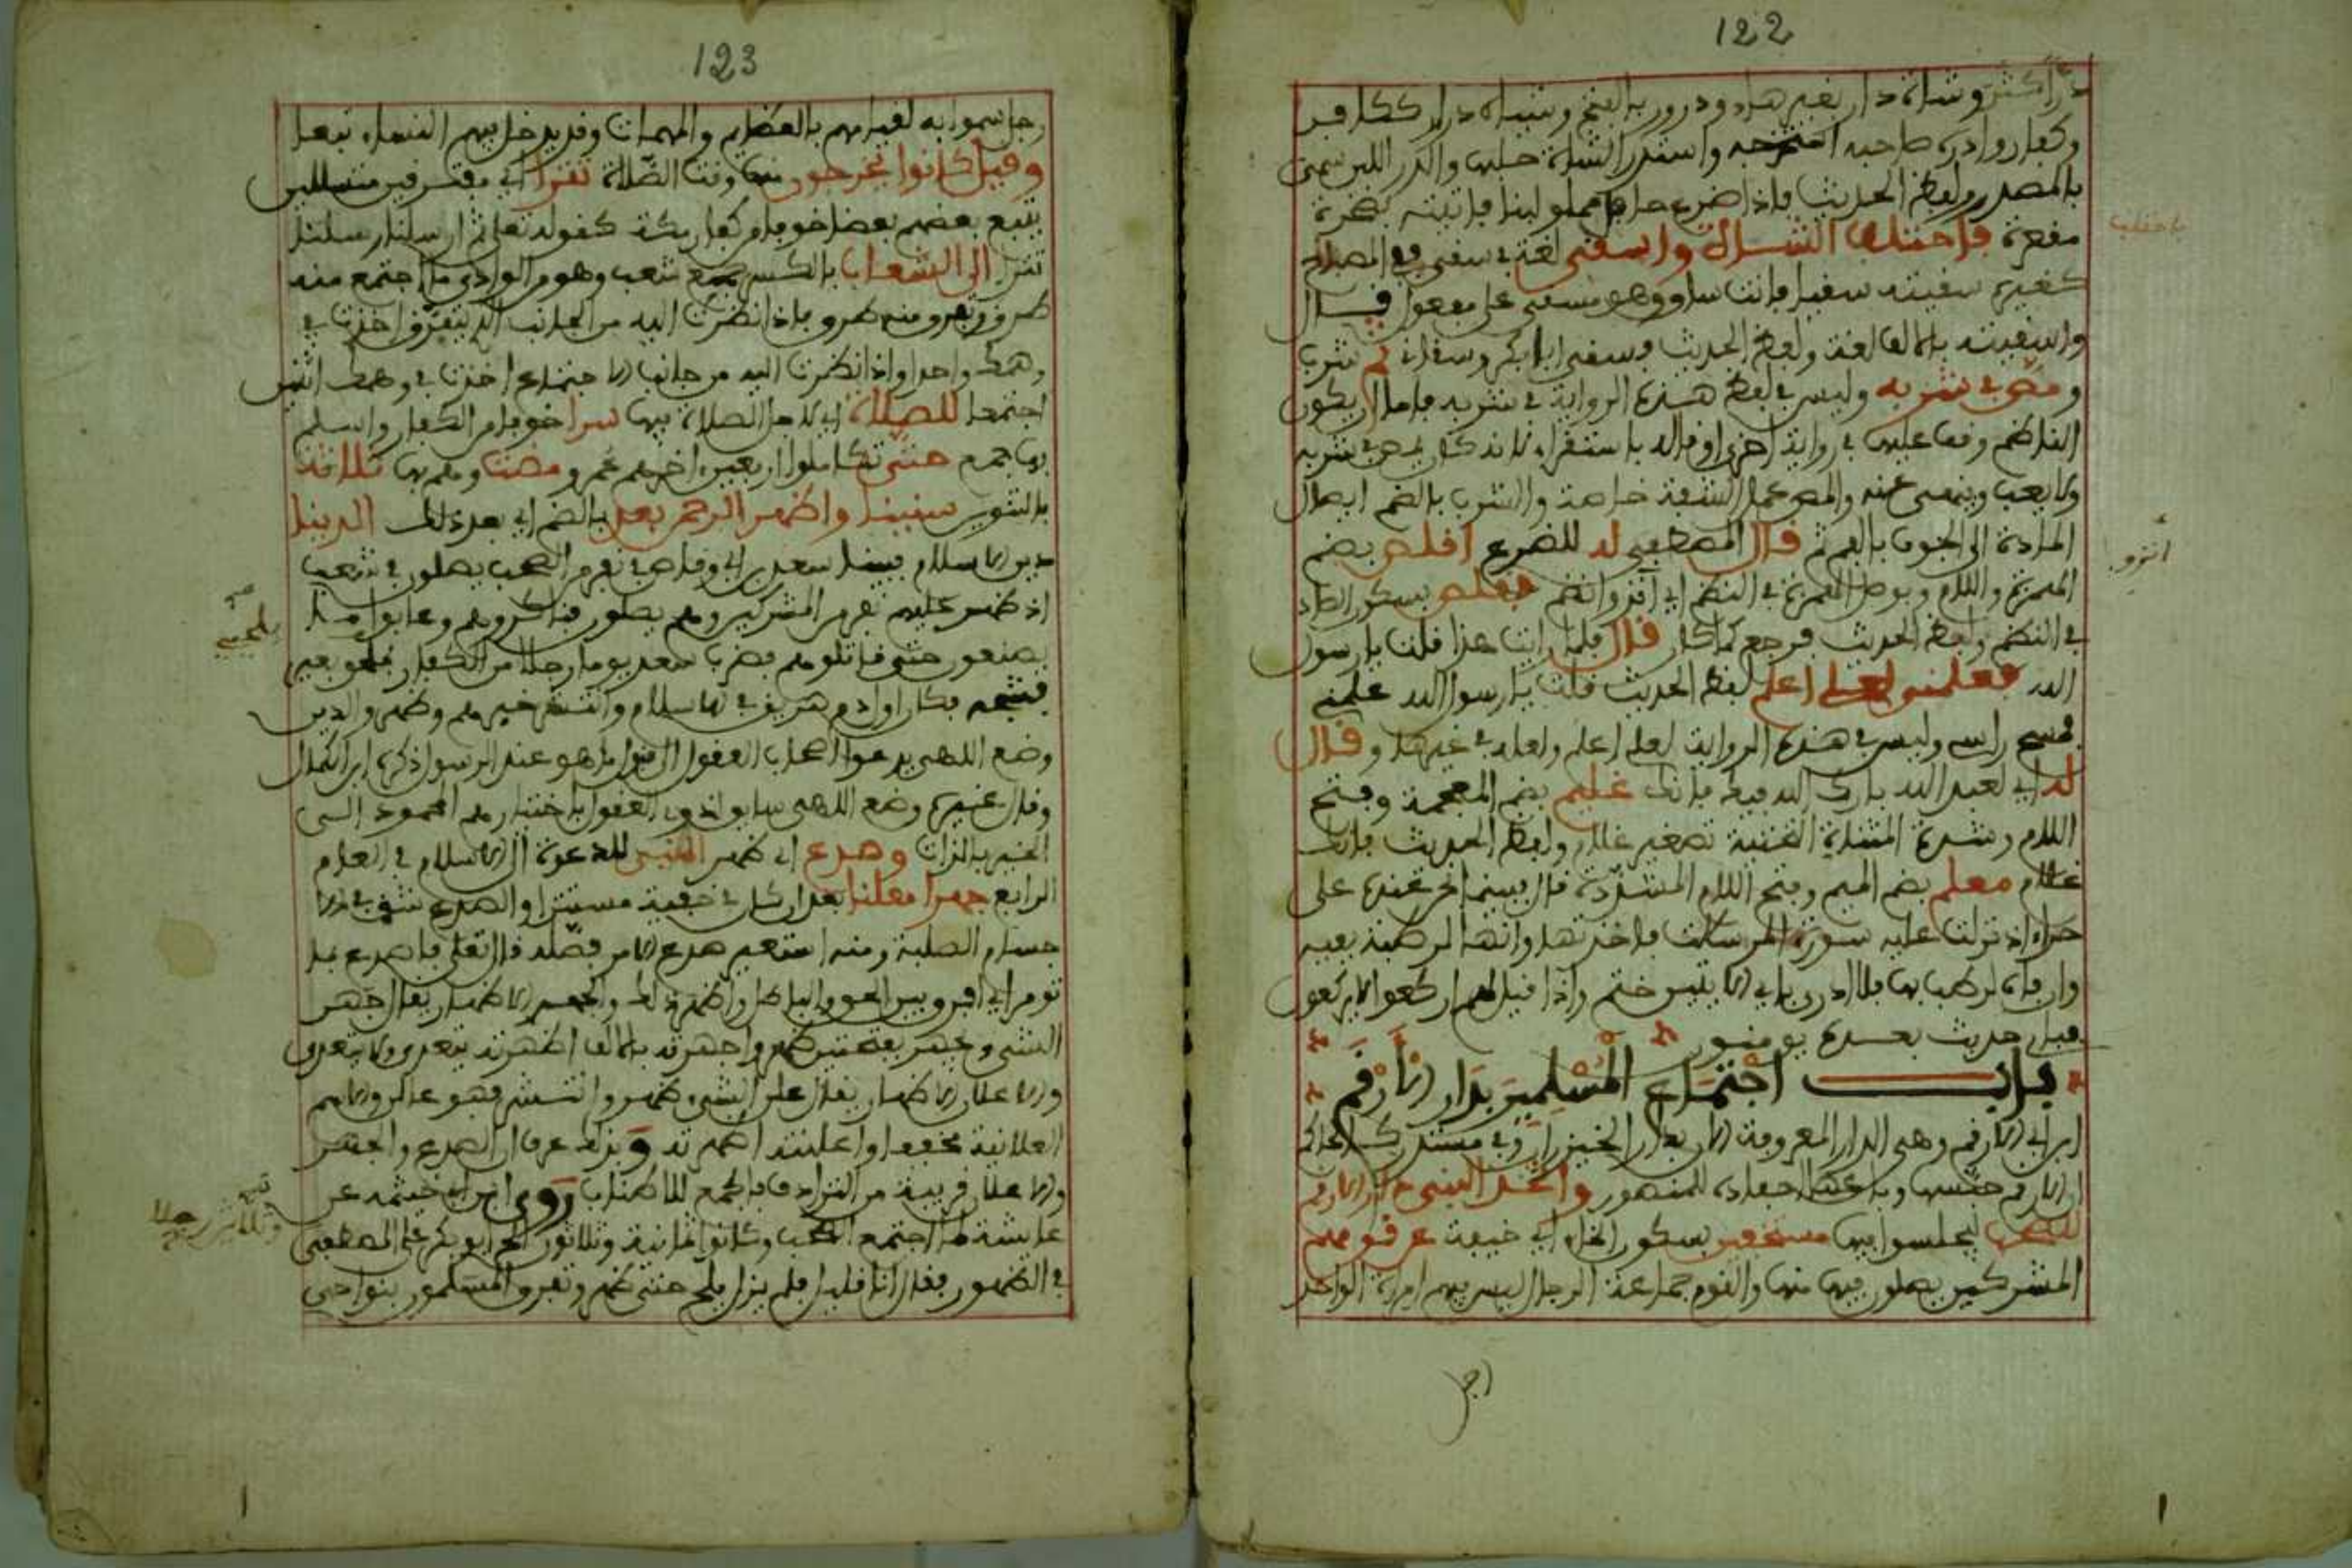 122
در أكثر وشاة دار بغير هاء ودرور به الفتح وشياه درار ككافر
وكفار وادره صاحبه استخرجه واستدر الشاة حلبها والدر اللبن سمي
بالمصدر ولفظ الحديث فاذا ضرع حافل مملو لبنا فاتيته بصخرة
منقعرة فاحتلب الشاة واسقى لغة في سقى ففي المصباح
كغيره سقيته سقيا فانا ساق وهو مسقي على مفعول قال
واسقيته بالالف لغة ولفظ الحديث وسقى ابا بكر وسقاني ثم شرب
ومص في شربه وليس في لفظ هذه الرواية في شربه فاما ان يكون
الناظم وقف عليها في رواية اخرى او قاله باستقراء لانه كان يمص في شربه
ولا يعب وينهى عنه والمص عمل الشفة خاصة والشرب بالضم ايصال
المادة الى الجوف بالفم ثم قال المصطفى له للضرع اقلص بضم
الهمزة واللام وبوصل الهمزة في النظم اي انزو انضم فقلص بسكون الصاد
في النظم ولفظ الحديث فرجع كما كان قال فلما رايت هذا قلت يا رسول
الله فعلمني لعلي اعلم لفظ الحديث قلت يا رسول الله علمني
فمسح راسي وليس في هذه الرواية لعلي اعلم ولعله في غيرها وقال
له اي لعبد الله بارك الله فيك فانك غليم بضم المعجمة وفتح
اللام وشدة المثناة التحتية تصغير غلام ولفظ الحديث فانك
غلام معلم بضم الميم وفتح اللام المشددة قال فبينما نحن عنده على
حراء اذ نزلت عليه سورة المرسلات فاخذتها وانها لرطبة بفيه
وان فاه لرطب بها فلا ادري باي الايتين ختم واذا قيل لهم اركعوا لا يركعون
فباي حديث بعده يومنون
باب اجتماع المسلمين بدار الارقم
ابن ابي الارقم وهي الدار المعروفة الان بدار الخيزران وفي مستدرك الحاكم
ان الارقم حبسها وباعها احفاده للمنصور واتخذ النبي دار الارقم
للصحب يجلسوا فيها مستخفين بسكون الخاء اي خيفة عن قومهم
المشركين يصلون فيها منها والقوم جماعة الرجال ليس فيهم امراة الواحد
رجل
انزو
123
رجل سموا به لقيامهم بالعظائم والمهمات وقد يدخل فيهم النساء تبعا
وقيل كانوا يخرجون منها وقت الصلاة تترا اي مفترقين متسللين
يتبع بعضهم بعضا خوفا من كفار مكة كقوله تعالى ثم ارسلنا رسلنا
تترا الى الشعاب بالكسر جمع شعب وهو من الوادي ما اجتمع منه
طرف وتفرق منه طرف فاذا نظرت اليه من الجانب الذي تفرق اخذت في
وهمك واحدا واذا نظرت اليه من جانب الاجتماع اخذت في وهمك اثنين
اجتمعا للصلاة اي لاجل الصلاة فيها سرا خوفا من الكفار واسلم
بها جمع حتى تكاملوا اربعين اخرهم عمر ومضت وهم بها ثلاثة
بالتنوين سنينا واظهر الرحمن بعد بالضم اي بعد ذلك الدينا
دين الاسلام فبينما سعد بن ابي وقاص في نفر من الصحب يصلون في شعب
اذ ظهر عليهم نفر من المشركين وهم يصلون فناكروهم وعابوا ما
يصنعون حتى قاتلوهم فضرب سعد يومئذ رجلا من الكفار بلحي بعير
فشجه فكان اول دم هريق في الاسلام وانتشر خبرهم وظهر والدين
وضع الاهي يدعوا اصحاب العقول الى قبول ما هو عند الرسول ذكره ابن الكمال
وقال غيره وضع الاهي سايق لذوي العقول باختيارهم المحمود الى
الخير بالذات وصدع اي ظهر النبي للدعوة الى الاسلام في العام
الرابع جهرا معلنا بعد ان كان في خيفة مستترا والصدع شق في الا
جسام الصلبة ومنه استعير صدع الامر فصله قال تعالى فاصدع بما
تومر اي افرق بين الحق والباطل واظهر ذلك والجهر الاظهار يقال جهر
الشيء وجهر بفتحتين ظهر واجهرته بالالف اظهرته يتعدى ولا يتعدى
والاعلان الاظهار يقال علن الشيء ظهر وانتشر فهو عالن والاسم
العلانية مخففا واعلنته اظهرته وبذلك عرف ان الصدع والجهر
والاعلان قريبة من الترادف فالجمع للاطناب روى ابن ابي خيثمة عن
عايشة لما اجتمع الصحب وكانوا ثمانية وثلاثون الح ابو بكر على المصطفى
في الظهور فقال انا قليل فلم يزل يلح حتى ظهر وتفرق المسلمون بنواحي
بلحيي
وثلاثين رجلا